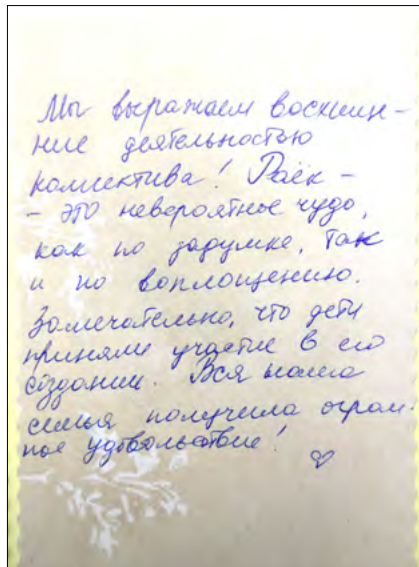 Мы выражаем восхище-
ние деятельностью
коллектива! Раёк -
- это невероятное чудо,
как по задумке, так
и по воплощению.
Замечательно, что дети
приняли участие в его
создании. Вся наша
семья получила огром-
ное удовольствие!